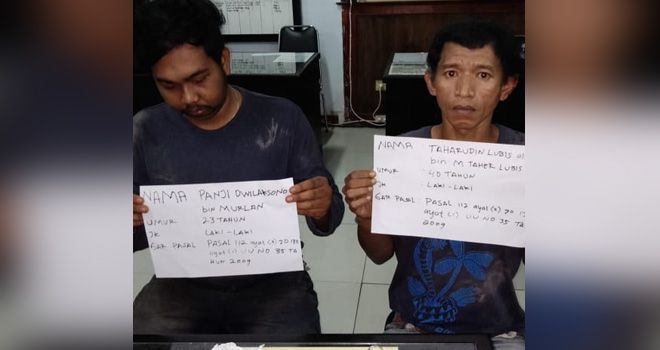 NAMA PANJI DWILAKSONO
bin MURLAN
UMUR 23 TAHUN
JK LAKI-LAKI
PASAL PASAL 112 ayat (2) JO 132
ayat (1) UU NO 35 TA
HUN 2009
NAMA TAHARUDIN LUBIS
bin M TAHER LUBIS
UMUR : 40 TAHUN
JK : LAKI-LAKI
PASAL PASAL 112 ayat (2) JO 13
ayat (1) UU NO 35 TA
2009